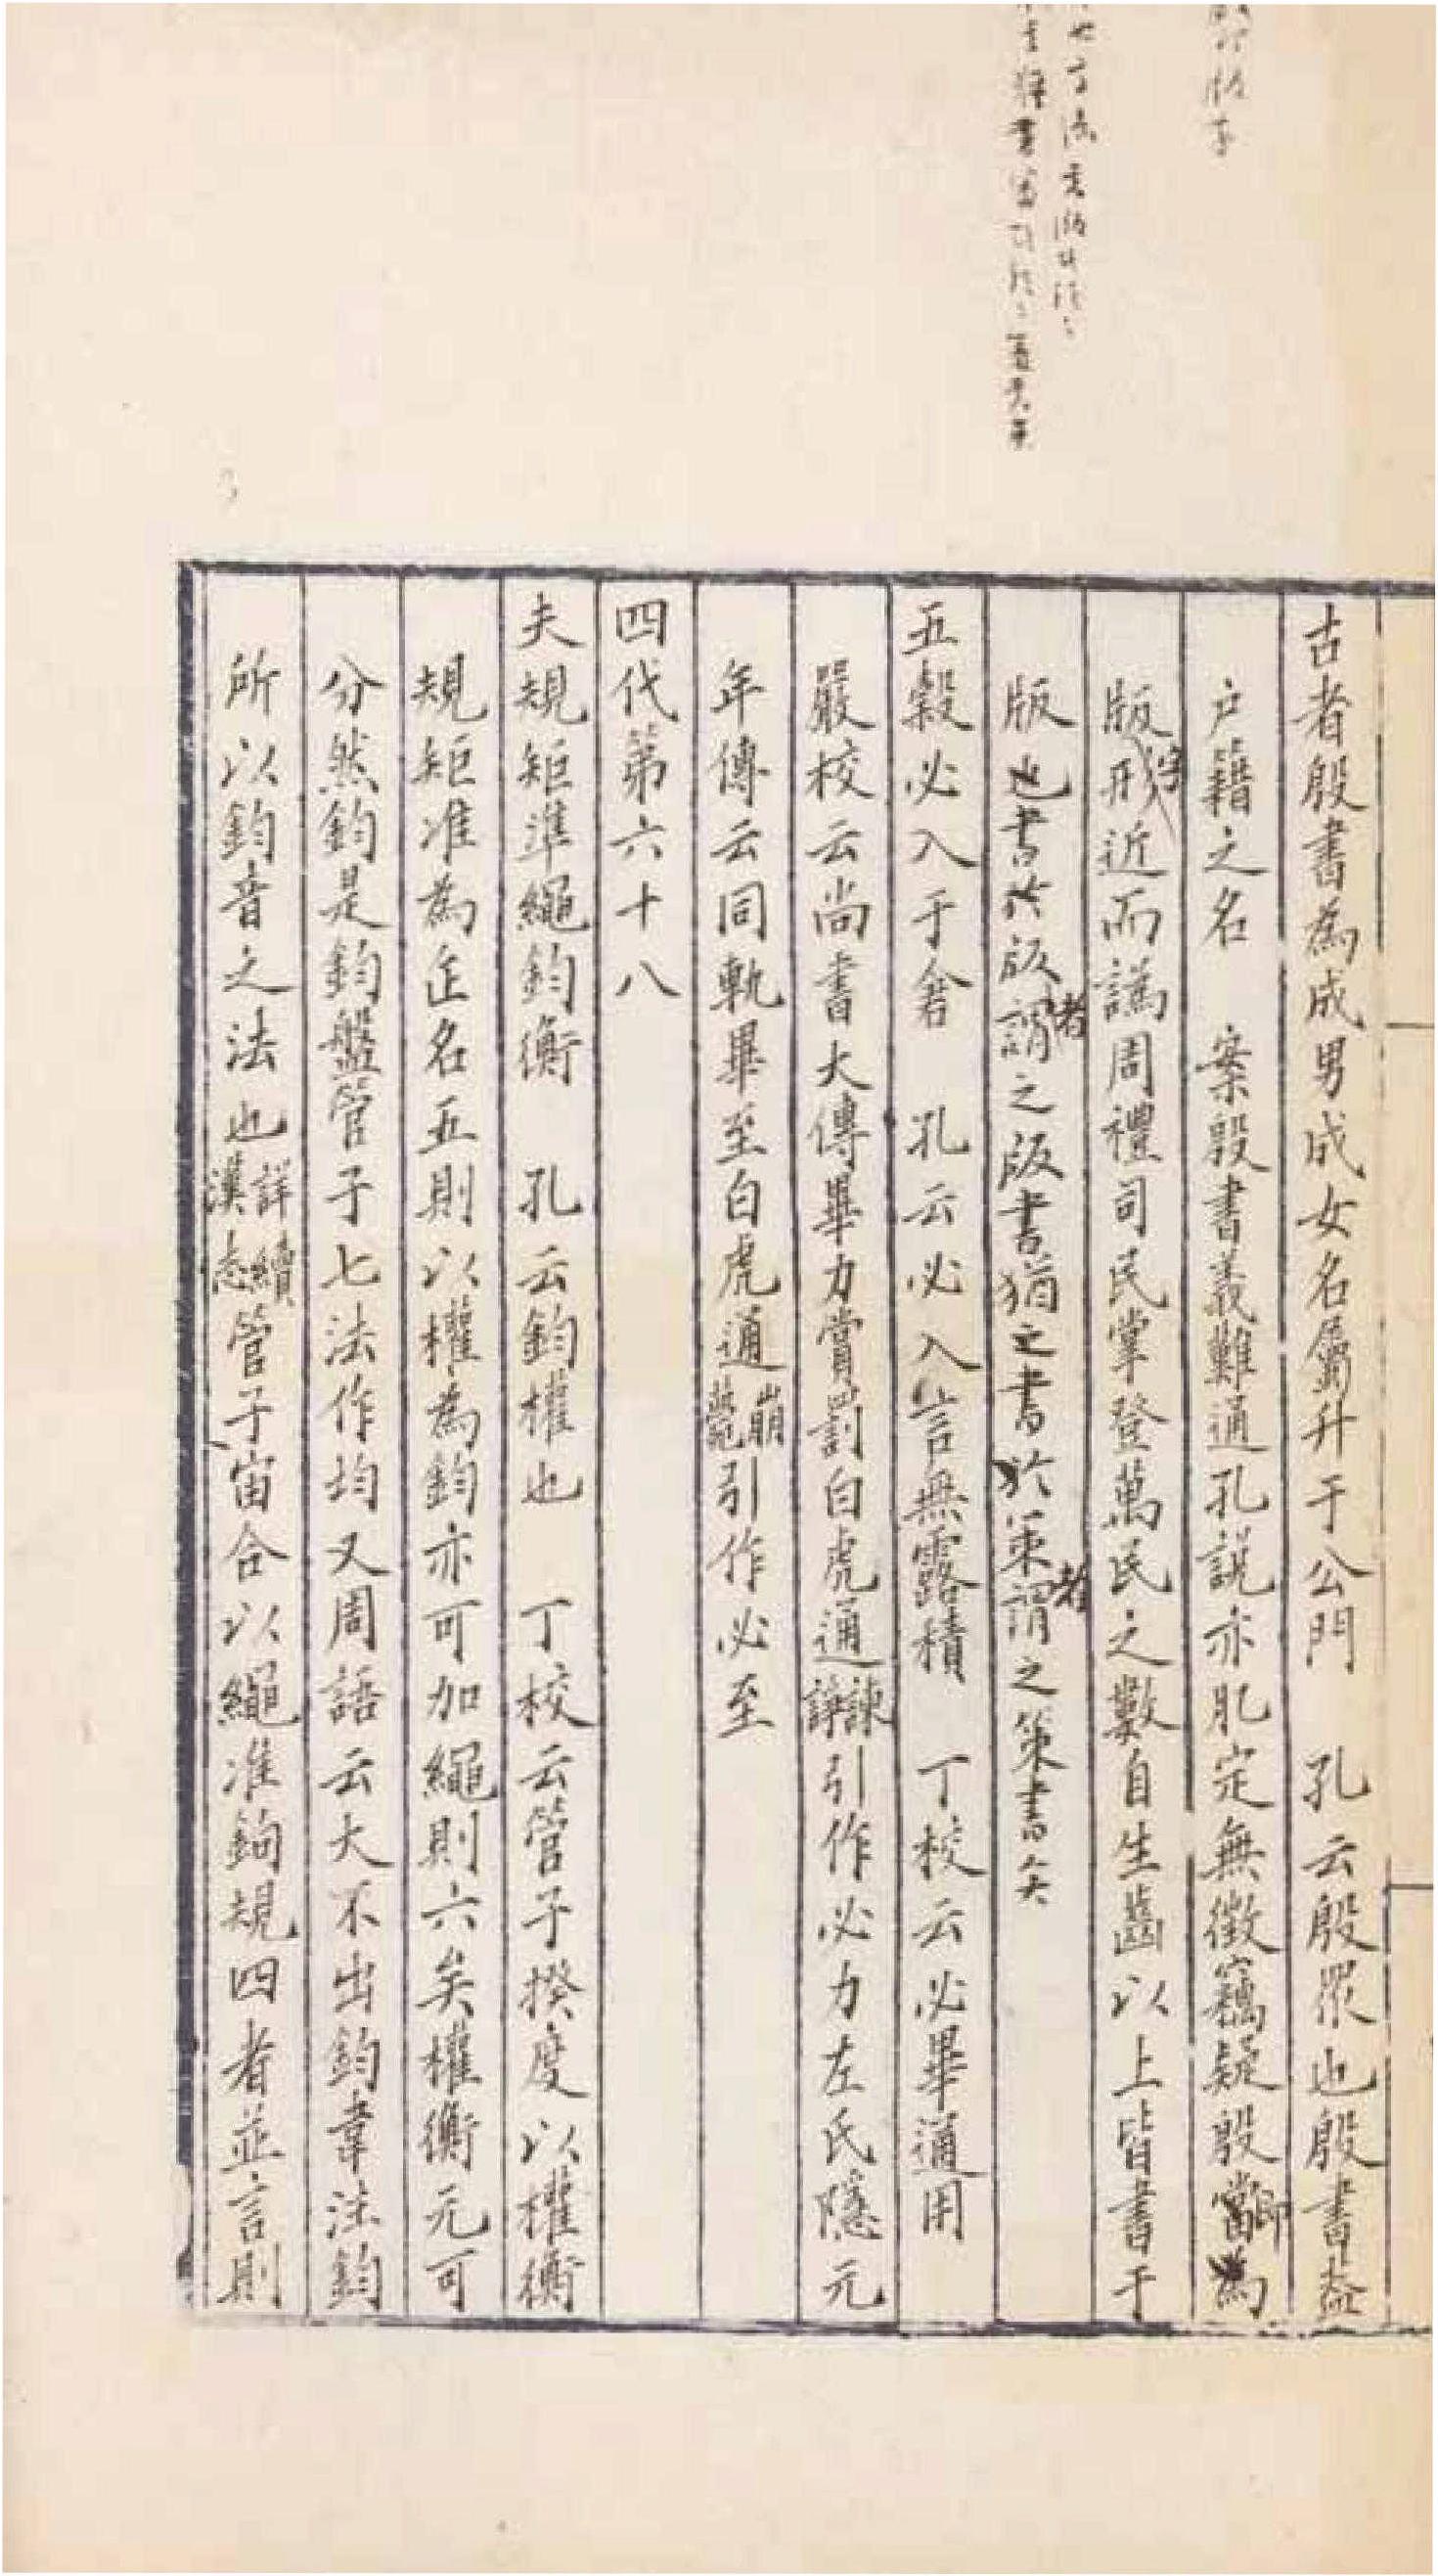 古者殷書為成男成女名屬升于公門　孔云殷眾也殷書蓋
戶籍之名　案殷書義難通孔說亦肊定無徵竊疑殷當即為
版字形近而譌周禮司民掌登萬民之數自生齒以上皆書于
版也書於版者謂之版書猶之書於策者謂之策書矣
五穀必入于倉　孔云必入言無露積　丁校云必畢通用
嚴校云尚書大傳畢力賞罰白虎通諫諍引作必力左氏隱元
年傳云同軌畢至白虎通崩薨引作必至
四代第六十八
夫規矩準繩鈞衡　孔云鈞權也　丁校云管子揆度以權衡
規矩准為正名五則以權為鈞亦可加繩則六矣權衡元可
分然鈞是鈞盤管子七法作均又周語云大不出鈞韋注鈞
所以鈞音之法也詳續漢志管子宙合以繩准鉤規四者並言則